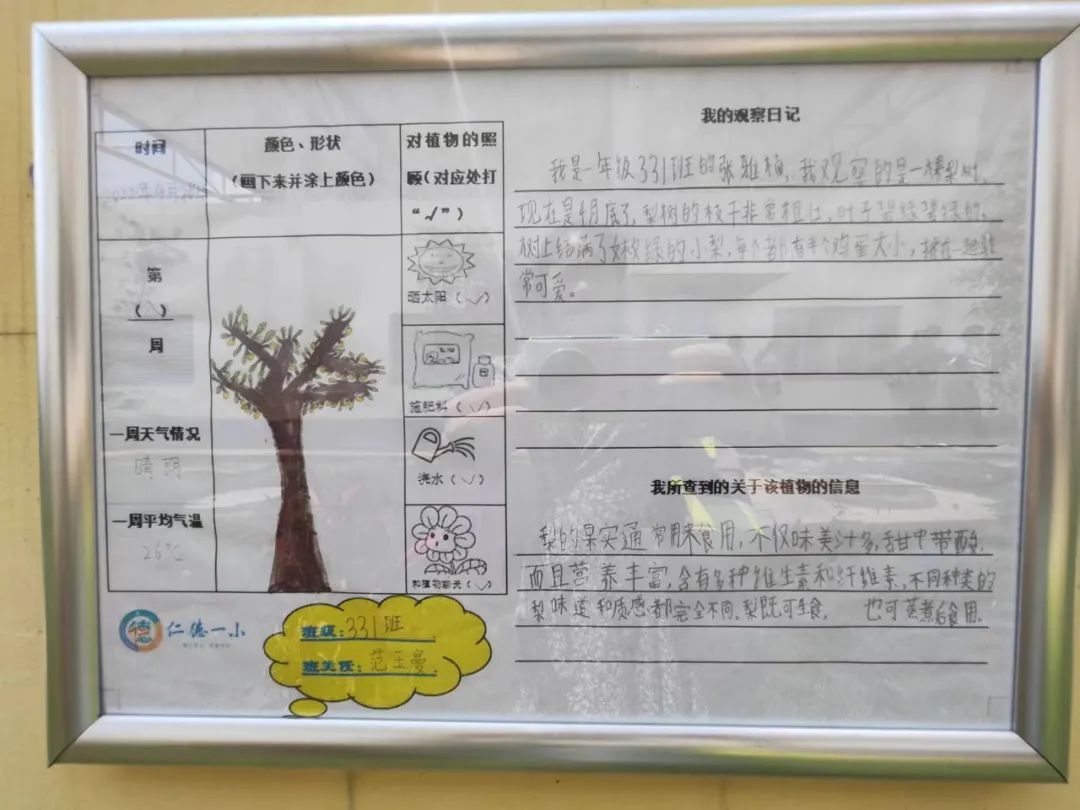 时间
颜色、形状
(画下来并涂上颜色)
对植物的照
顾(对应处打
“√”)
第
(   )
周
晒太阳(√)
施肥料(√)
一周天气情况
晴 阴
浇水(√)
一周平均气温
26℃
和植物聊天(√)
仁德一小
班级:331班
班主任:范玉曼
我的观察日记
我是一年级331班的张雅梅,我观察的是一棵梨树,
现在是4月底了,梨树的枝干非常粗壮,叶子碧绿碧绿的,
树上结满了嫩绿的小梨,每个都有半个鸡蛋大小,挤在一起非
常可爱。
我所查到的关于该植物的信息
梨的果实通常用来食用,不仅味美汁多,甜中带酸,
而且营养丰富,含有多种维生素和纤维素。不同种类的
梨味道和质感都完全不同。梨既可生食, 也可蒸煮后食用。